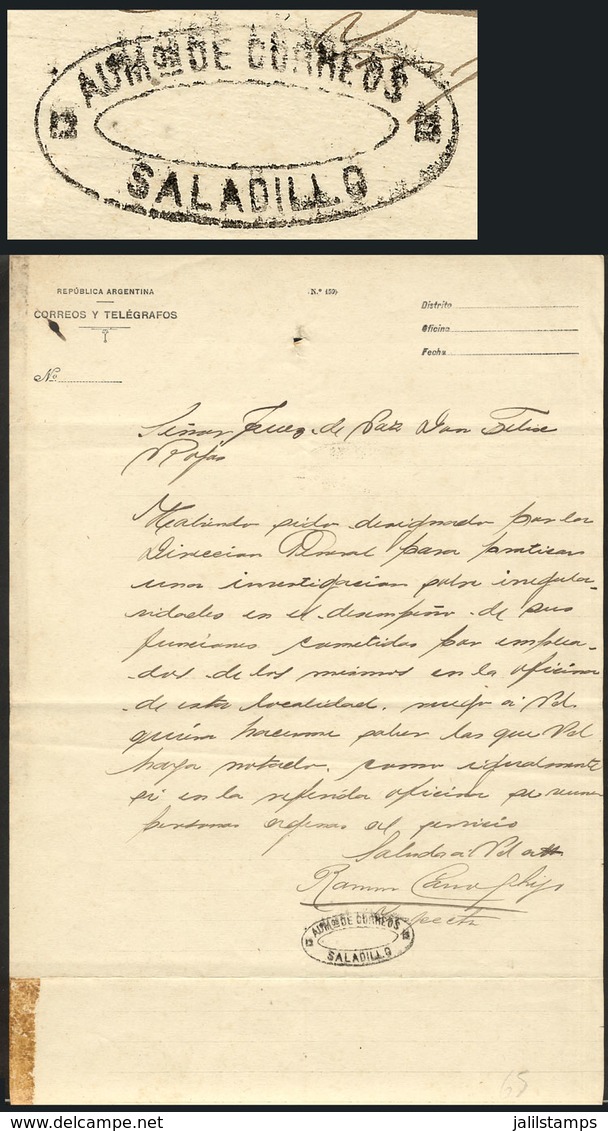 ADMon DE CORREOS
SALADILLO
REPÚBLICA ARGENTINA
CORREOS Y TELÉGRAFOS
(N.º 159)
Distrito
Oficina
Fecha
No
Señor Juez de Paz Don Felix
Rojas
Habiendo sido designado por la
Direccion General para practicar
una investigacion sobre irregula-
ridades en el desempeño de sus
funciones cometidas por emplea-
dos de los mismos en la oficina
de esta localidad, ruego a Vd
quiera hacerme saber las que Vd
haya notado, como igualmente
si en la referida oficina se reunen
personas agenas al servicio
Saluda a Vd att
Ramon Cano
ADMon DE CORREOS
SALADILLO
65
jalilstamps